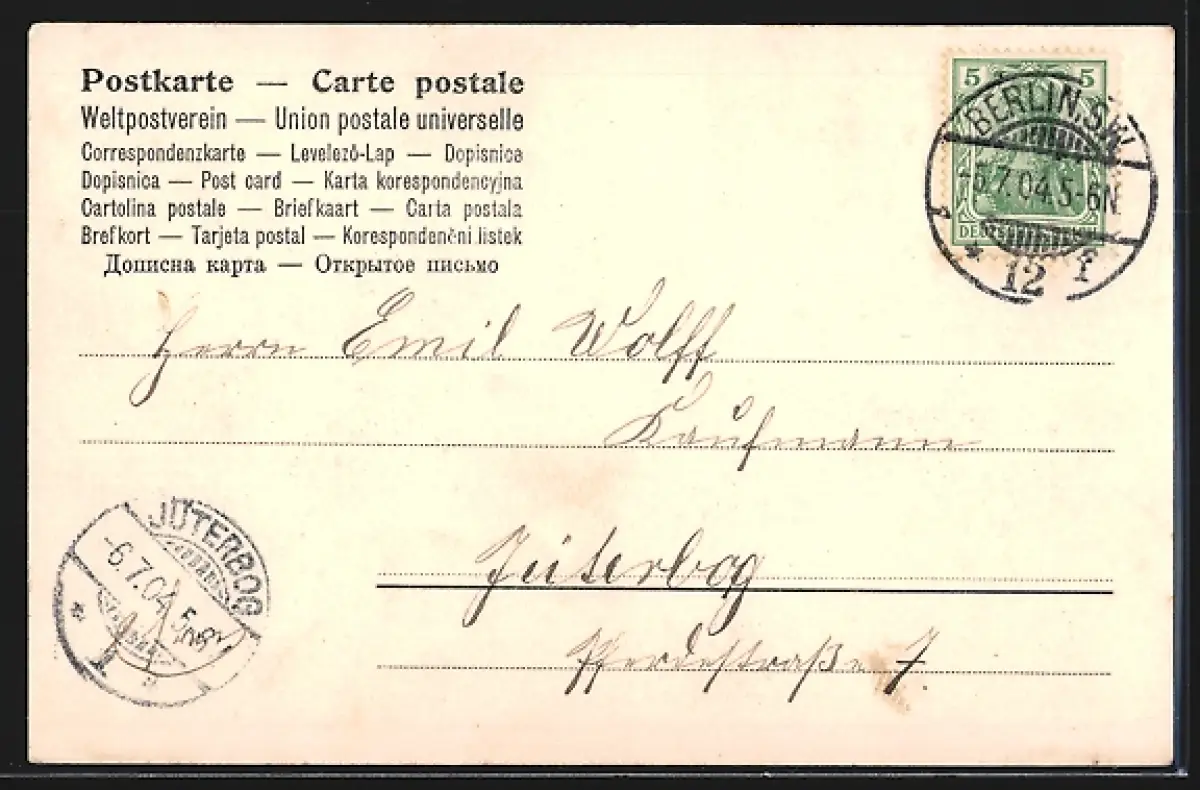 Postkarte — Carte postale
Weltpostverein — Union postale universelle
Correspondenzkarte — Levelező-Lap — Dopisnica
Dopisnica — Post card — Karta korespondencyjna
Cartolina postale — Briefkaart — Carta postala
Brefkort — Tarjeta postal — Korespondenční listek
Дописна карта — Открытое письмо
5 5
DEUTSCHES REICH
BERLIN, S.W.
-5.7.04.5-6N
* 12 f
Herrn Emil Wolff
Kaufmann
JÜTERBOG
-6.7.04
Jüterbog
Pferdestraße 7.